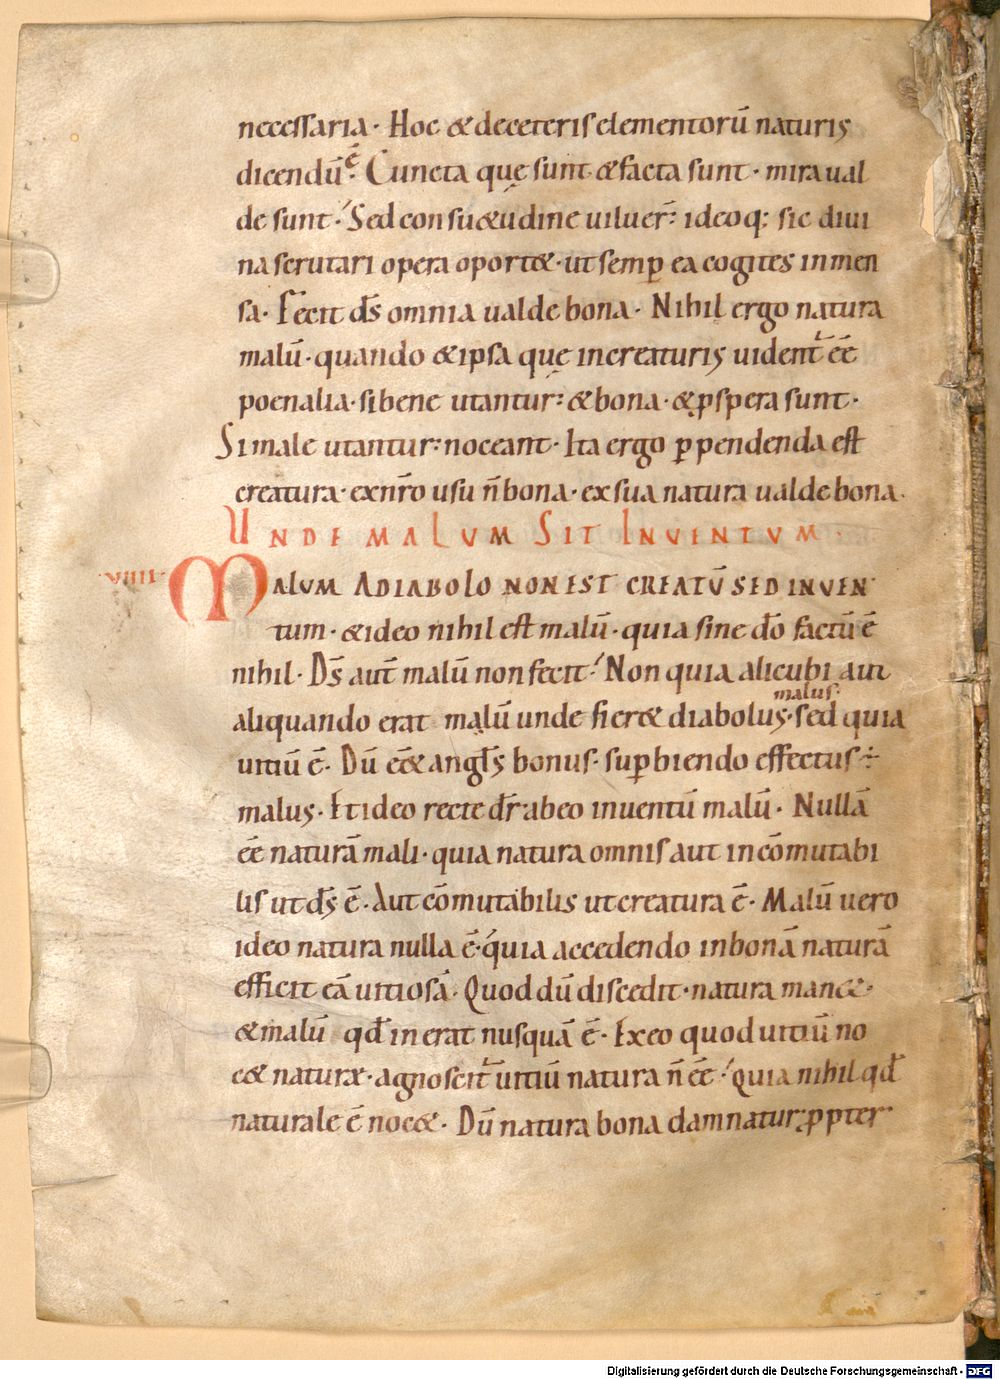 necessaria · Hoc & deceteris elementorū naturis
dicendū ē · Cuncta quę sunt · & facta sunt · mira ual
de sunt · Sed consu&udine uiluer̄ : ideoq; sic diui
na scrutari opera oport& · ut semp̱ ea cogites inmen
sa · Fecit d̄s omnia ualde bona · Nihil ergo natura
malū · quando & ipsa quę increaturis uident̄ eē̄
poenalia · si bene utantur : & bona · & p̱spera sunt ·
Si male utantur : noceant · Ita ergo p̱pendenda est
creatura · exnr̄o usu n̄ bona · ex sua natura ualde bona ·
UNDE MALUM SIT INVENTUM ·
· VIIII · MALVM A DIABOLO NON EST CREATŪ SED INVEN
tum · & ideo nihil est malū · quia sine d̄o factū ē
nihil · D̄s aut̄ malū non fecit · Non quia alicubi aut
malus
aliquando erat malū unde fier& diabolus · sed quia
uitiū ē · Dū ee& angl̄s bonus · sup̱biendo effectus ÷
malus · Et ideo recte dr̄ abeo inuentū malū · Nullā
eē naturā mali · quia natura omnis aut incōmutabi
lis ut d̄s ē · Aut cōmutabilis ut creatura ē · Malū uero
ideo natura nulla ē · quia accedendo inbonā naturā
efficit eā uitiosā · Quod dū discedit · natura man& ·
& malū qđ inerat nusquā ē · Ex eo quod uitiū no
c& naturæ · agnoscit̄ uitiū natura n̄ eē · Quia nihil qđ
naturale ē noc& · Dū natura bona damnatur p̱pter
Digitalisierung gefördert durch die Deutsche Forschungsgemeinschaft - DFG